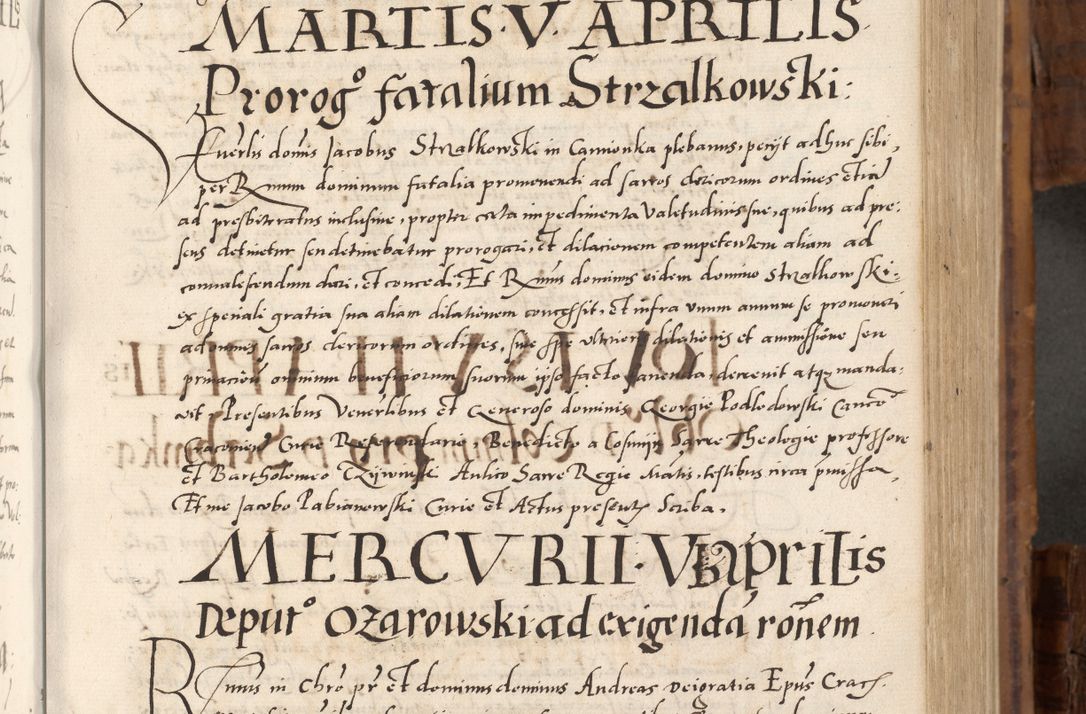 MARTIS · V · APRILIS
Prorogo fatalium Strzalkowski:
Vnerlis domis Jacobus Strzalkowski in Camionka plebanus, petijt adhuc sibi,
per Rmum dominum fatalia promouendi ad sacros clericorum ordines etia
ad presbiteratus inclusiue, propter certa impedimenta valetudinis sue, quibus ad pre:
sens detinetur seu detinebatur prorogari, et dilacionem competentem aliam ad
conualescendum dari, et concedi, Et Rmus dominus eidem domino Strzalkowski:
ex speciali gratia sua aliam dilationem concessit, et infra vnum annum se promoueri
ad omnes sacros clericorum ordines, sine spe vlterioris dilationis et amissione seu
priuacione omnium beneficiorum suorum ipso facto, decreuit atqz manda:
uit, Presentibus Venerlibus et Generoso dominis Georgio Podlodowski Canco
Cracouien Curie Referendario, Benedicto a Cosmijn Sacre Theologie professore
et Bartholomeo Aulico Sacre Regie Matis, testibus circa pmissa,
Et me Jacobo Pabianowski Curie et Actus presentz Scriba,
MERCVRII · VI APRILIS
Deputo Ozarowski ad exigenda ronem
Rmus in Chro pr et dominus dominus Andreas dei gratia Epus Crac.